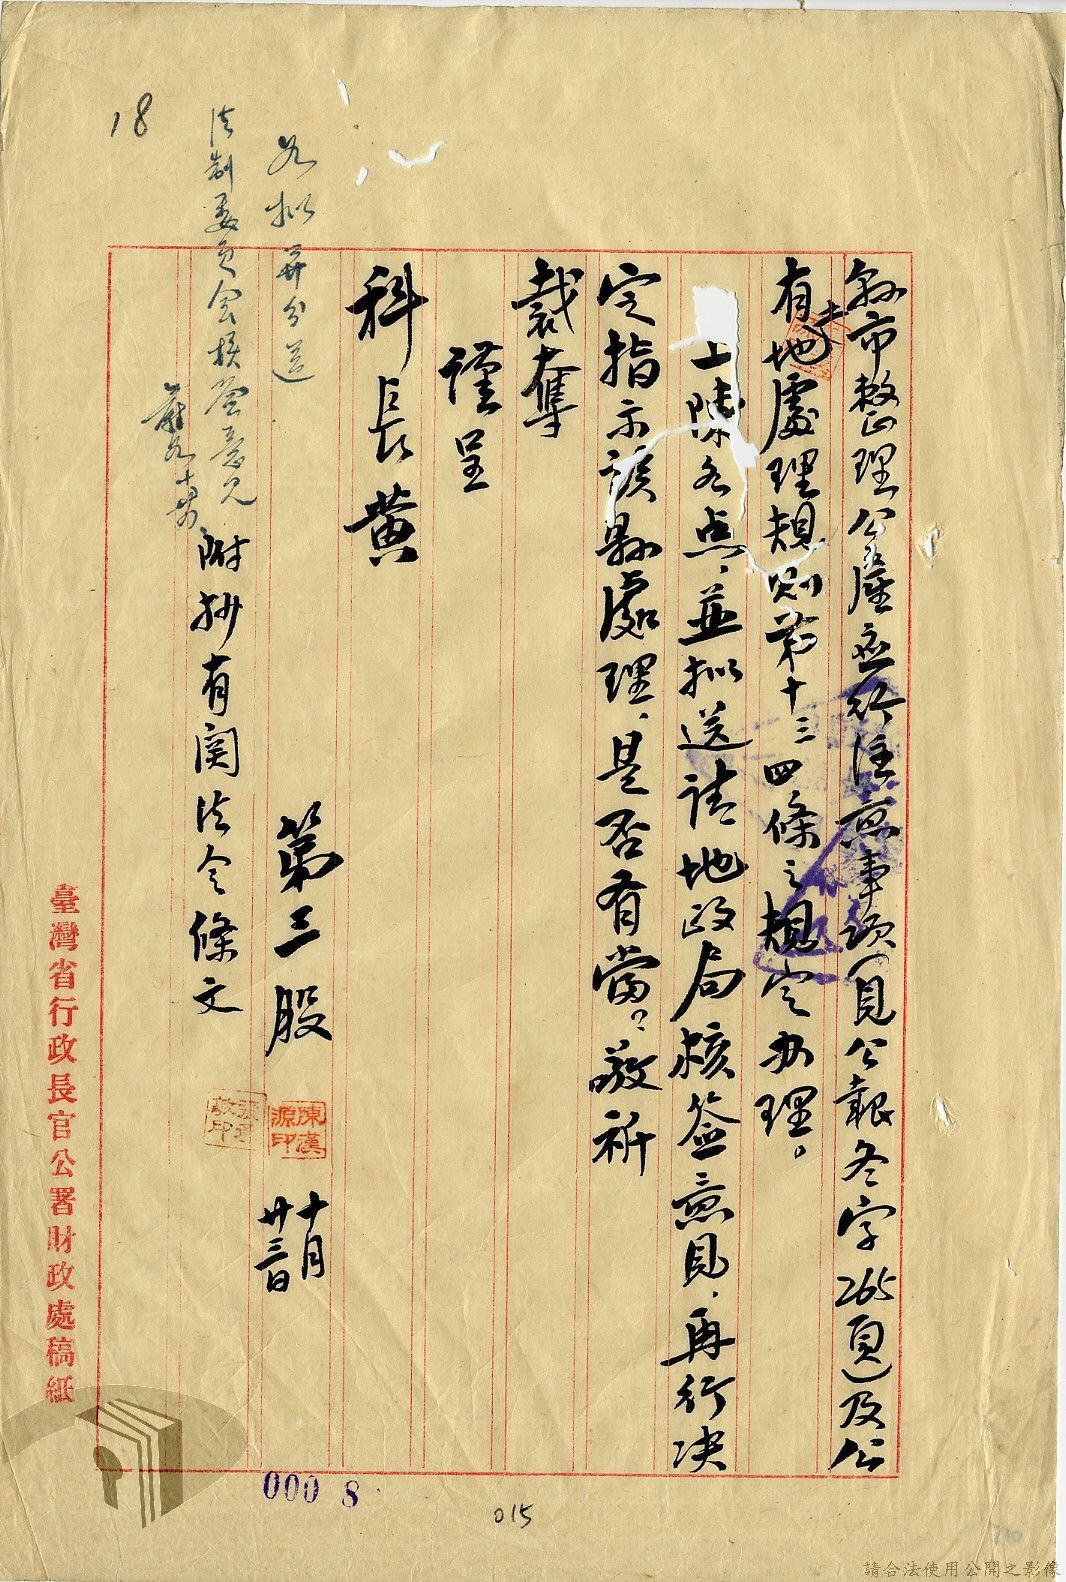 縣市整理公產應行注意事項(見公報冬字265頁)及公
有土地處理規則第十三四條之規定办理。
上陳各点，並拟送請地政局核簽意見，再行决
定指示該縣處理，是否有當？敬祈
裁奪
謹呈
科長黄
第三股
陳漢源印
十月
廿三日
附抄有関法令條文
如拟并分送
法制委員会核簽意見
18
臺灣省行政長官公署財政處稿紙
000 8
015
請合法使用公開之影像